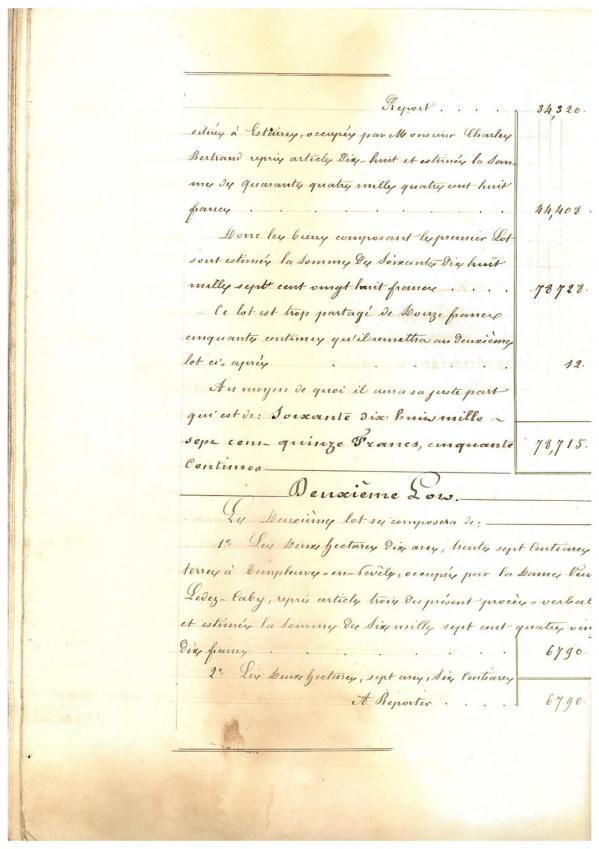 Report . . . . 34,320.
situées à Estaires, occupées par Monsieur Charles
Bertrand repris article Dix-huit et estimées la Som-
me de Quarante quatre mille quatre cent huit
francs . . . . . . . . 44,408.
Donc les biens composant le premier Lot
sont estimés la somme De Soixante dix huit
mille sept cent vingt huit francs . . . . 78,728.
Ce lot est trop partagé de Douze francs
cinquante centimes qu'il remettra au deuxième
lot ci-après . . . . . . . . 12.
Au moyen de quoi il aura sa juste part
qui est de: Soixante dix huit mille
sept cent quinze Francs, cinquante 78,715.
Centimes
Deuxième Lot.
Le Deuxième lot se composera de:
1° Les Deux hectares dix ares, trente sept Centiares
terres à Templeuve-en-Pévèle, occupées par la Dame Veu
Ledez-Caby, repris article trois du présent procès-verbal
et estimées la Somme de Six mille sept cent quatre vin
dix francs . . . . 6790.
2° Les Deux hectares, sept ares, Six Centiares
A Reporter . . . . 6790.